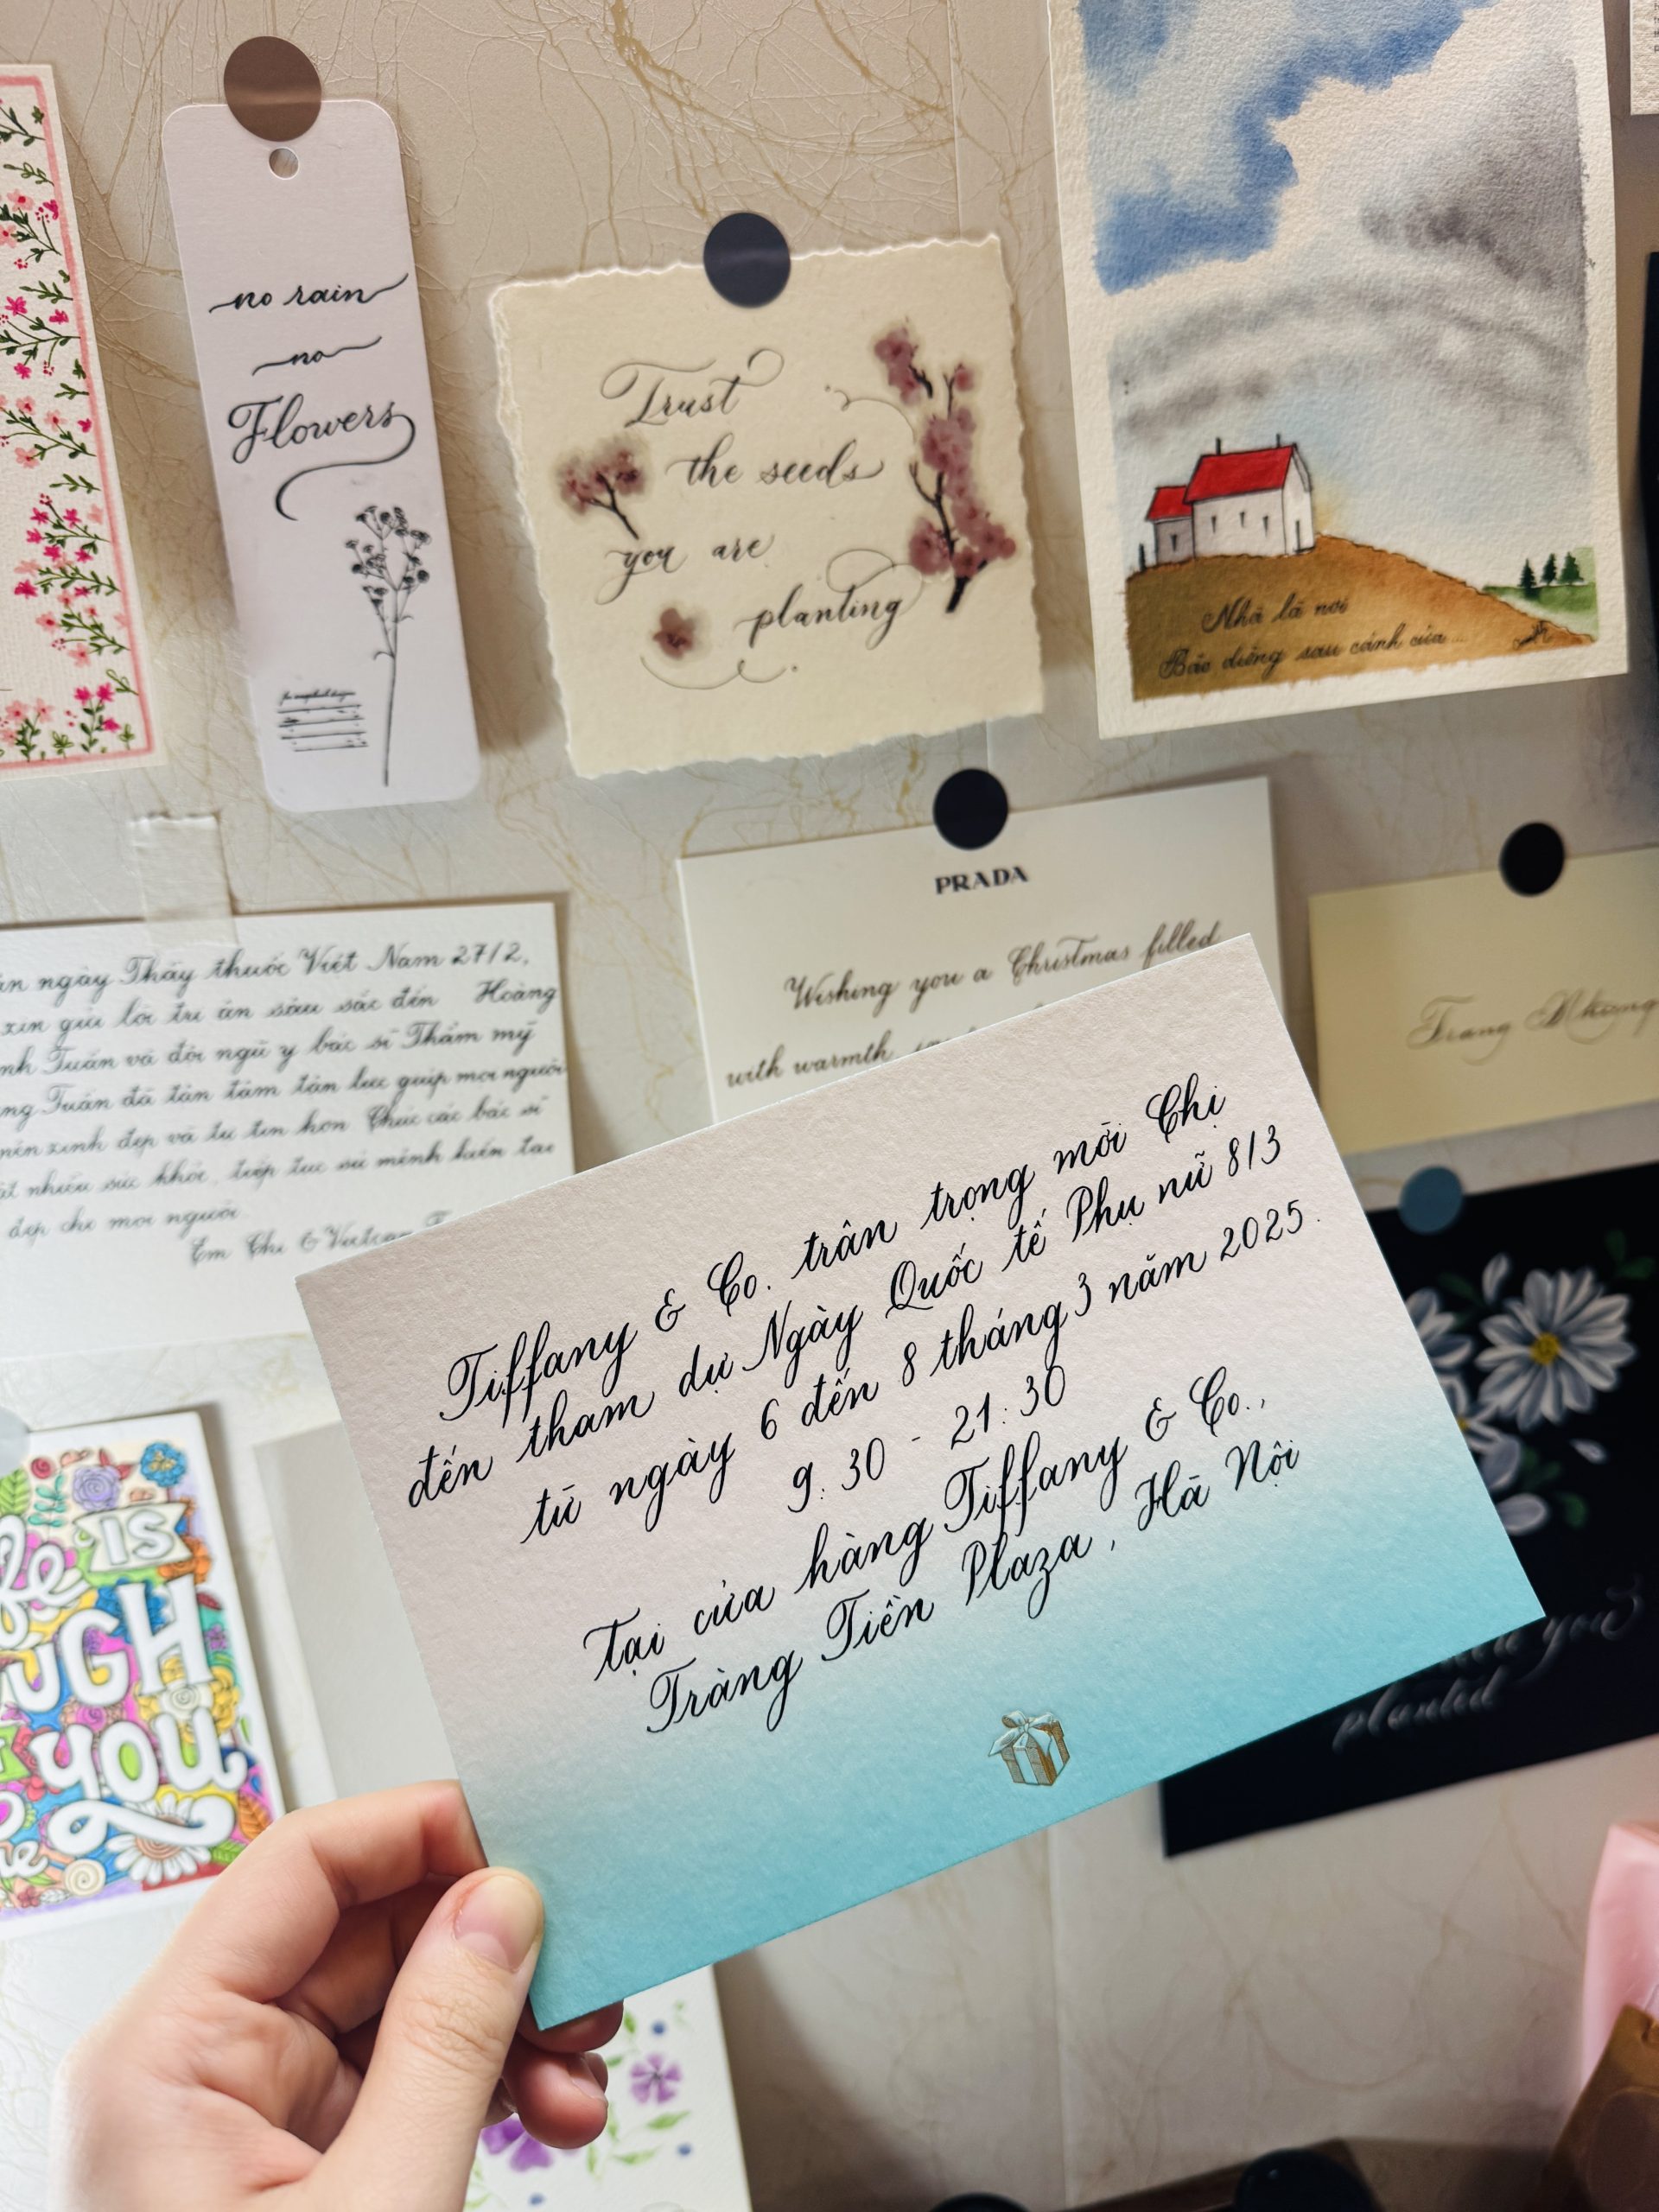 no rain
no
Flowers
Trust
the seeds
you are
planting
Nhà là nơi
Bão dừng sau cánh cửa...
PRADA
Wishing you a Christmas filled
with warmth,
Trang Nhung
ngày Thầy thuốc Việt Nam 27/2,
xin gửi lời tri ân sâu sắc đến Hoàng
Tuấn và đội ngũ y bác sĩ Thẩm mỹ
Tuấn đã tận tâm tận lực giúp mọi người
xinh đẹp và tự tin hơn. Chúc các bác sĩ
nhiều sức khỏe, tiếp tục sứ mệnh kiến tạo
đẹp cho mọi người
Em Chi &
Tiffany & Co. trân trọng mời Chị
đến tham dự Ngày Quốc tế Phụ nữ 8/3
từ ngày 6 đến 8 tháng 3 năm 2025.
9:30 - 21:30
Tại cửa hàng Tiffany & Co.,
Tràng Tiền Plaza, Hà Nội
IS
YOU
you
planted